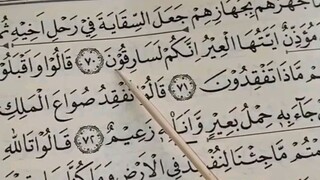 جَهَّزَهُم بِجَهَازِهِمْ جَعَلَ السِّقَايَةَ فِي رَحْلِ أَخِيهِ ثُمَّ
مُؤَذِّنٌ أَيَّتُهَا الْعِيرُ إِنَّكُمْ لَسَارِقُونَ ﴿٧٠﴾ قَالُوا وَأَقْبَلُوا
مَّاذَا تَفْقِدُونَ ﴿٧١﴾ قَالُوا نَفْقِدُ صُوَاعَ الْمَلِكِ
جَاءَ بِهِ حِمْلُ بَعِيرٍ وَأَنَا بِهِ زَعِيمٌ ﴿٧٢﴾ قَالُوا تَاللَّهِ
مْتُم مَّا جِئْنَا لِنُفْسِدَ فِي الْأَرْضِ وَمَا كُنَّا